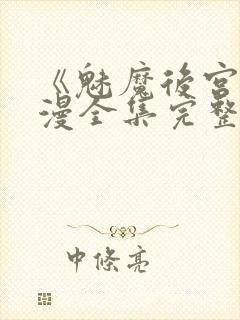 《魅魔後宮
漫全集完整
中條亮